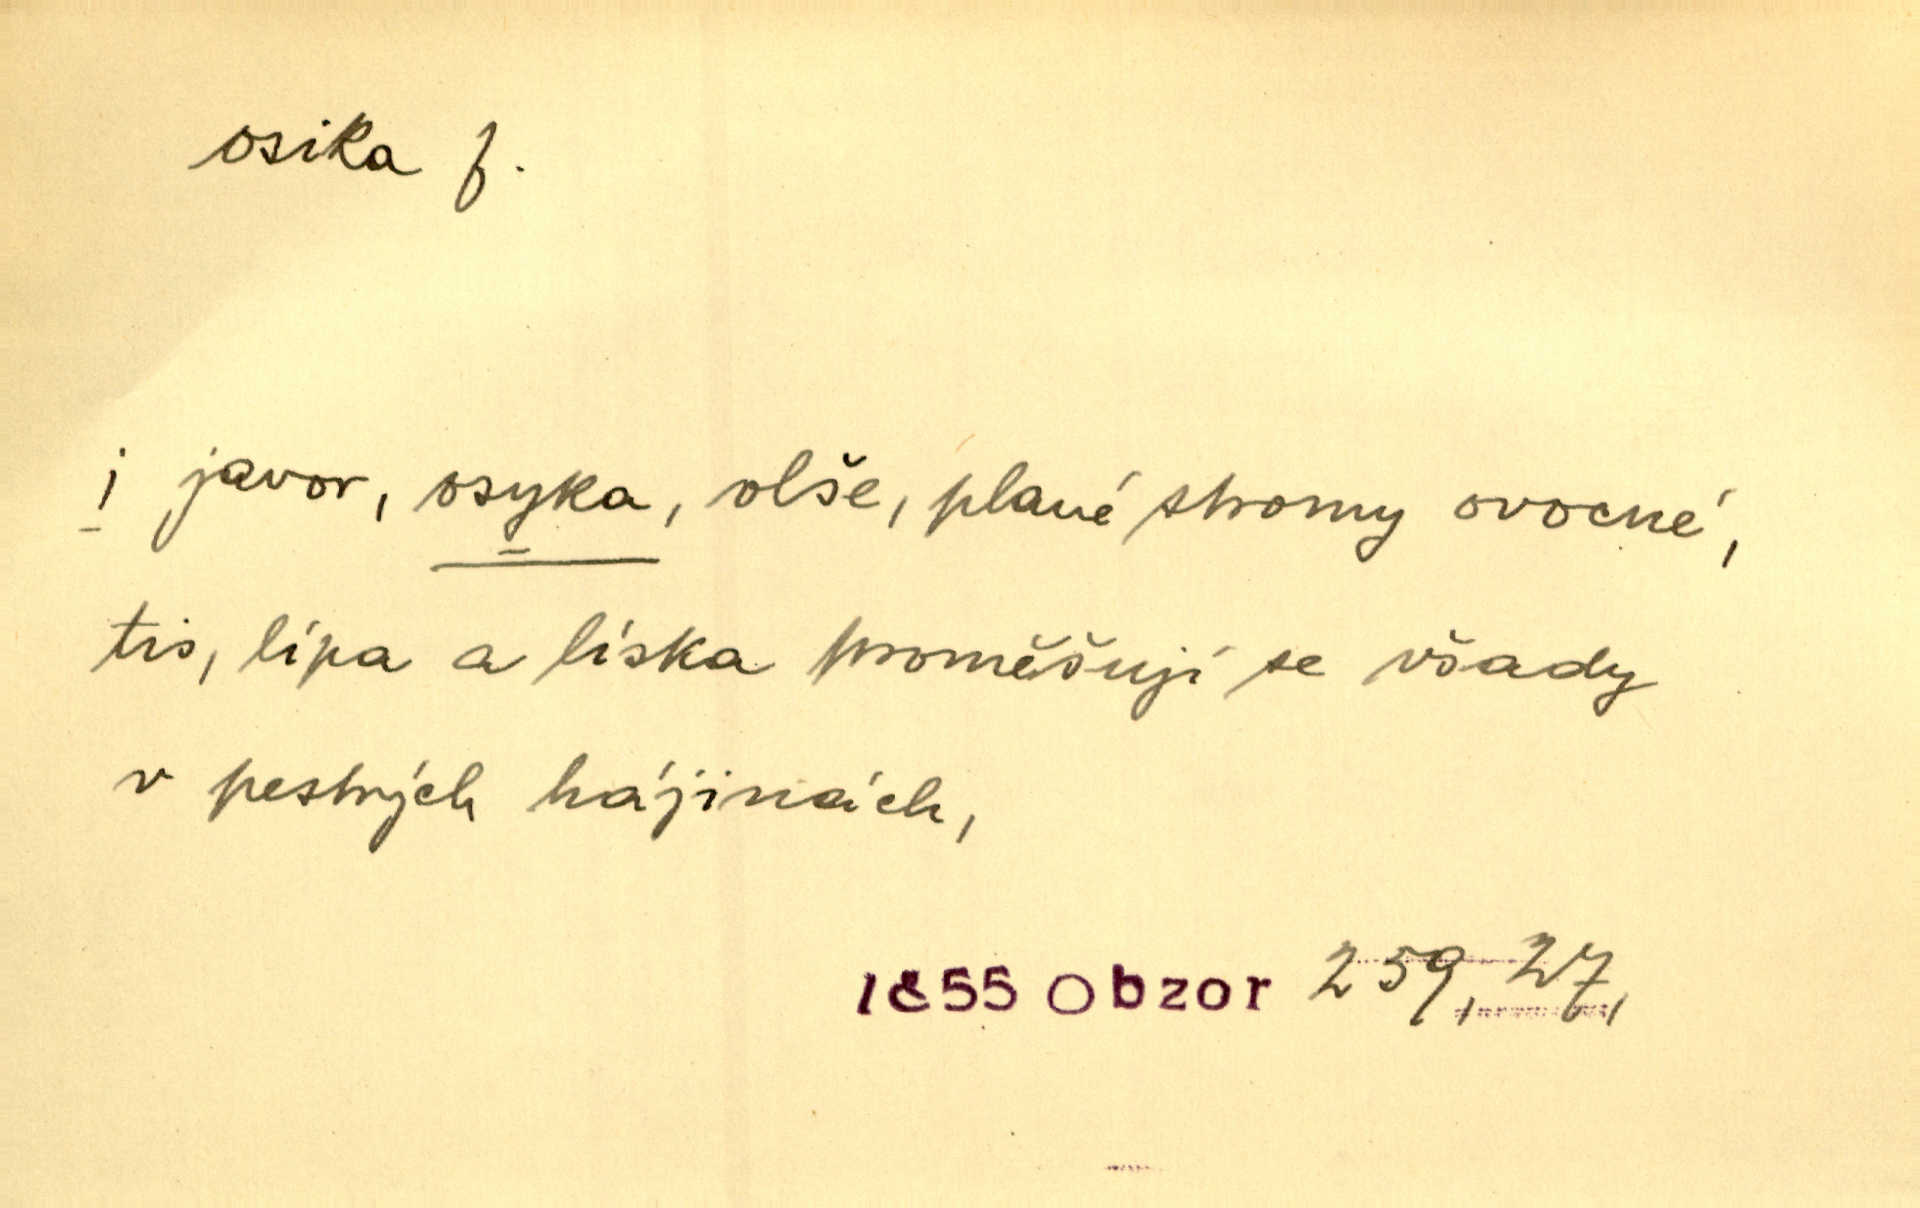 osika f.
i javor, osyka, olše, plané stromy ovocné,
tis, lípa a líska proměšují se všady
v pestrých hájinách,
1855 Obzor 259, 27,